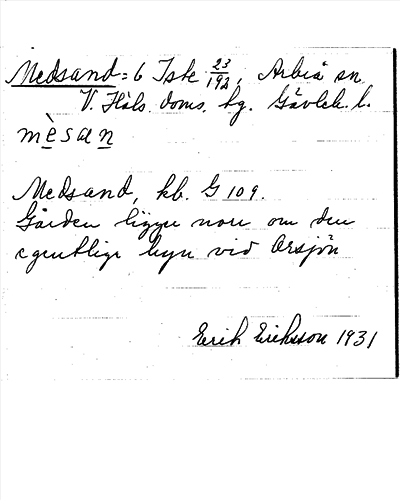 Medsand = 6 Iske 23/192, Arbrå sn.
V. Häls. doms. hg. Gävleb. l.
mèsan
Medsand, kb. G 109.
Gården ligger norr om den
egentliga byn vid Orsjön
Erik Eriksson 1931